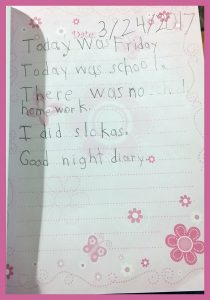 Date: 3/24/2017
Today was Friday
Today was school.
There was no
home work.
I did slokas.
Good night diary.